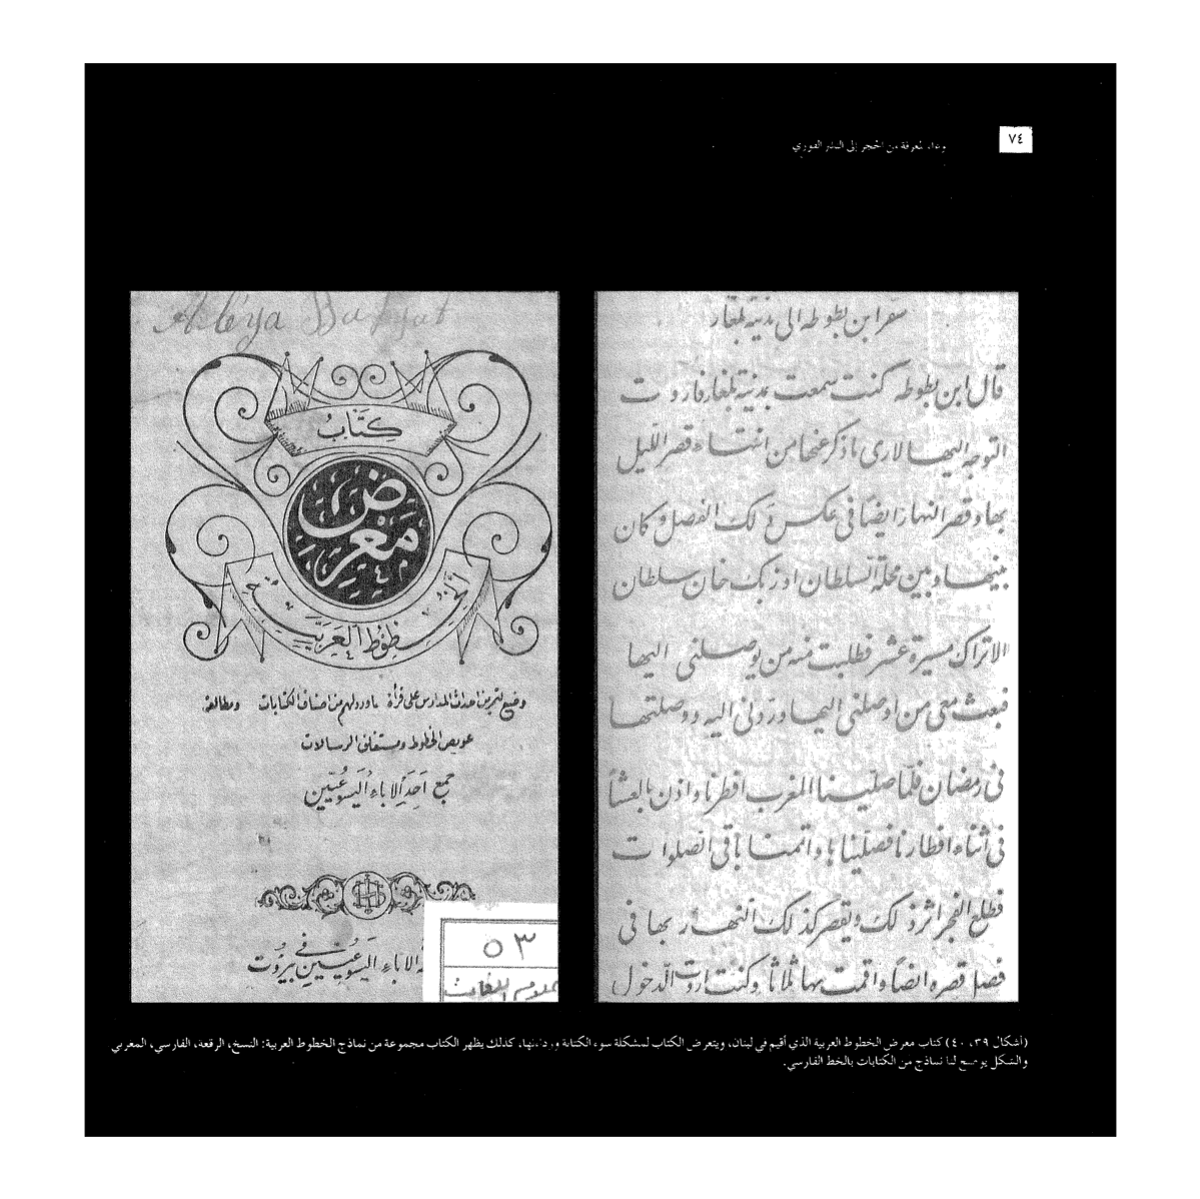 ٧٤
وعاء المعرفة من الحجر إلى النشر الفوري
سفر ابن بطوطه الى مدينة بلغار
قال ابن بطوطه كنت سمعت بمدينة بلغار فاردت
التوجه اليها لارى ما ذكر عنها من انتهاء قصر الليل
بها وقصر النهار ايضًا في عكس ذلك الفصل وكان
بينها وبين محلة السلطان اوزبك خان سلطان
الاتراك مسيرة عشر فطلبت منه من يوصلني اليها
فبعث معي من اوصلني اليها وردني اليه ووصلتها
في رمضان فلمّا صلينا المغرب افطرنا واذن بالعشآ
في اثناء افطارنا فصليناها واتممنا باقي الصلوات
فطلع الفجر اثر ذلك ويقصر كذلك النهار بها في
فصل قصره ايضًا واقمت بها ثلاثًا وكنت اردت الدخول
Bayyat
كِتَابُ
مَعْرِض
الخُطُوط العَرَبِيَّة
وضع لتمرين احداث المدارس على قرأة ما ورد لهم من اصناف الكتابات ومطالعة
عويص الخطوط ومستغلق الرسالات
جمع أحَد الآباءِ اليَسوعيّين
الآباءِ اليَسوعيّين في بَيرُوت
٥٣
علوم اللغات
(أشكال ٣٩، ٤٠) كتاب معرض الخطوط العربية الذي أقيم في لبنان، ويتعرض الكتاب لمشكلة سوء الكتابة ورداءتها، كذلك يظهر الكتاب مجموعة من نماذج الخطوط العربية: النسخ، الرقعة، الفارسي، المغربي
والشكل يوضح لنا نماذج من الكتابات بالخط الفارسي.